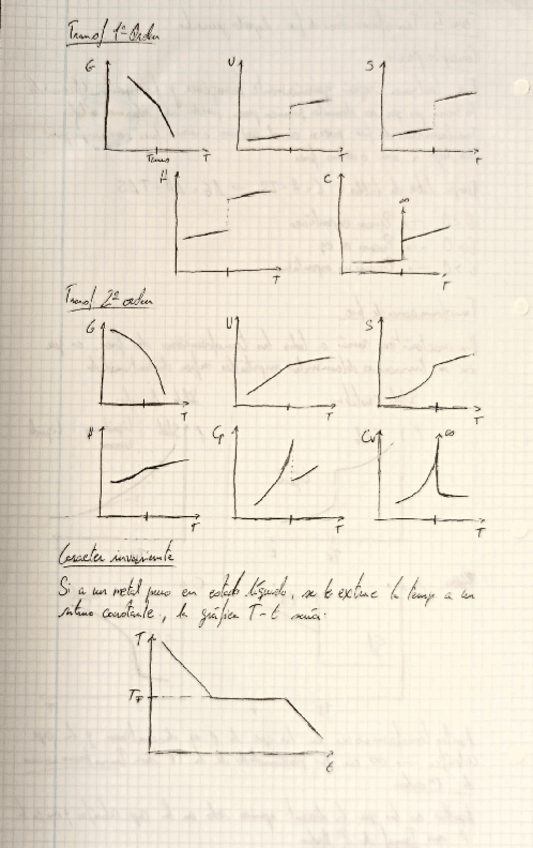 Transf 1ª Orden
G U S
Trans T T T
H C
∞
T T
Transf 2ª orden
G U S
T T T
H Cp Cv ∞
T T T
Caracter invariante
Si a un metal puro en estado líquido, se le extrae la temp a un
ritmo constante, la gráfica T-t sería:
T
TF
t